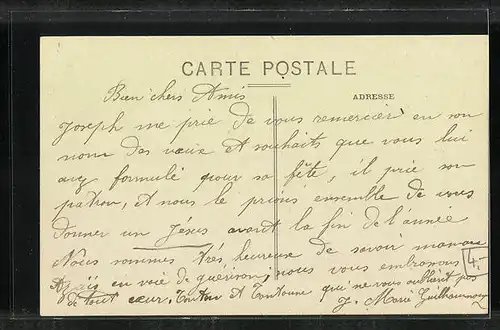 CARTE POSTALE
ADRESSE
Bien chers Amis
Joseph me prie de vous remercier en son
nom des vœux et souhaits que vous lui
avez formulé pour sa fête, il prie son
patron, et nous le prions ensemble de vous
donner un Jésus avant la fin de l'année
Nous sommes très heureuse de savoir
en voie de guérison, nous vous embrassons
de tout cœur, Tonton et Tontonne qui ne vous oublient pas
J. Marie
4-